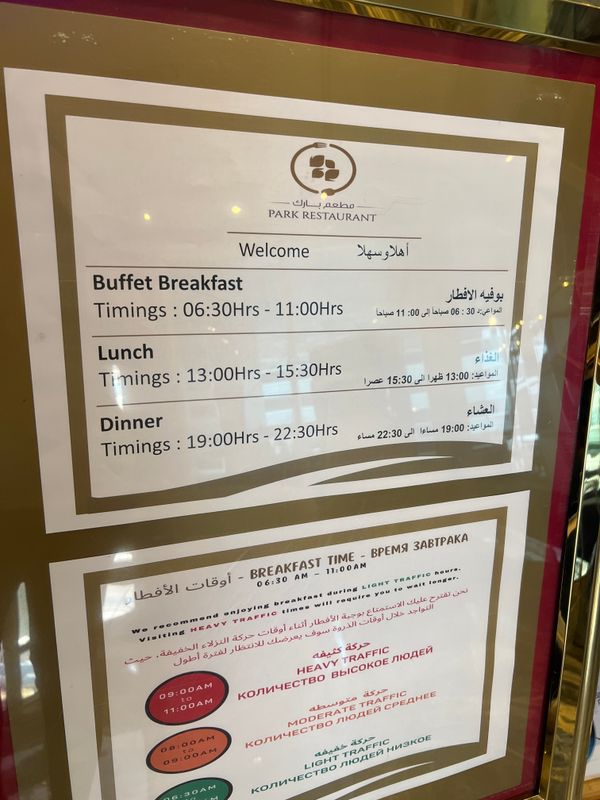 مطعم بارك
PARK RESTAURANT
Welcome أهلا وسهلا
Buffet Breakfast بوفيه الافطار
Timings : 06:30Hrs - 11:00Hrs المواعيد: 30 : 06 صباحاً إلى 00: 11 صباحا
Lunch الغذاء
Timings : 13:00Hrs - 15:30Hrs المواعيد: 13:00 ظهرا الى 15:30 عصرا
Dinner العشاء
Timings : 19:00Hrs - 22:30Hrs المواعيد: 19:00 مساءا الى 22:30 مساء
أوقات الأفطار - BREAKFAST TIME - ВРЕМЯ ЗАВТРАКА
06:30 AM – 11:00AM
We recommend enjoying breakfast during LIGHT TRAFFIC hours.
Visiting HEAVY TRAFFIC times will require you to wait longer.
نحن نقترح عليك الاستمتاع بوجبة الأفطار أثناء أوقات حركة النزلاء الخفيفة، حيث
التواجد خلال أوقات الذروة سوف يعرضك للانتظار لفترة أطول
حركة كثيفه
09:00AM HEAVY TRAFFIC
to
11:00AM КОЛИЧЕСТВО ВЫСОКОЕ ЛЮДЕЙ
حركة متوسطه
08:00AM MODERATE TRAFFIC
to
09:00AM КОЛИЧЕСТВО ЛЮДЕЙ СРЕДНЕЕ
حركة خفيفه
06:30AM LIGHT TRAFFIC
КОЛИЧЕСТВО ЛЮДЕЙ НИЗКОЕ